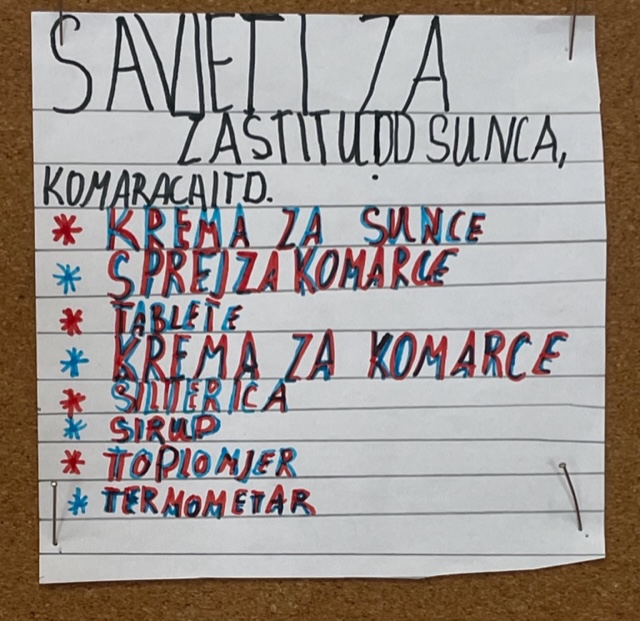 SAVJETI ZA
ZAŠTITU OD SUNCA,
KOMARACA ITD.
* KREMA ZA SUNCE
* SPREJ ZA KOMARCE
* TABLETE
* KREMA ZA KOMARCE
* SILTERICA
* SIRUP
* TOPLOMJER
* TERMOMETAR